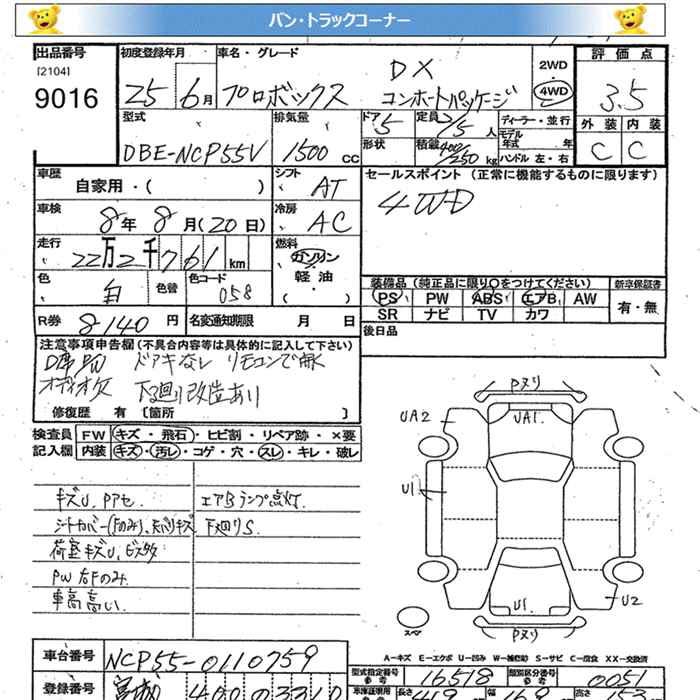 バン・トラックコーナー
出品番号
[2104]
9016
初度登録年月
25 6月
車名・グレード
プロボックス
DX
コンホートパッケージ
2WD
4WD
評価点
3.5
外装 内装
C C
型式
DBE-NCP55V
排気量
1500 cc
ドア 5
定員 2/5 人
形状
積載 400/250 kg
ディーラー・並行
モデル年式 年
ハンドル 左・右
車歴
自家用・( )
シフト AT
セールスポイント (正常に機能するものに限ります)
4WD
車検
8年 8月(20日)
冷房 AC
走行
22万2千761km
燃料
ガソリン
軽油
( ・ )
色
白
色替
色コード
058
装備品(純正品に限り○をつけてください)
新車保証書
PS PW ABS エアB AW
SR ナビ TV カワ
有・無
R券 8140 円
名変通知期限 月 日
後日品
注意事項申告欄(不具合内容等は具体的に記入して下さい)
ドアキなし リモコンで開く
下廻り改造あり
修復歴 有 〔箇所 〕
検査員記入欄
FW キズ・飛石・ヒビ割・リペア跡・×要
内装 キズ・汚レ・コゲ・穴・スレ・キレ・破レ
キズU.Pアセ.
エアBランプ点灯.
下廻りS.
荷室キズU.ビス多
PW右Fのみ.
車高高い.
Pヌリ
UA2
UA1
U1
U1
U2
スペア
Pヌリ
A—キズ E—エクボ U—凹み W—補修跡 S—サビ C—腐食 XX—交換済
車台番号
NCP55-0110759
型式指定番号
参考
16518
類別区分番号
参考
0051
登録番号
宮城 400
車庫証明用
参考
長さ 419
幅
高さ